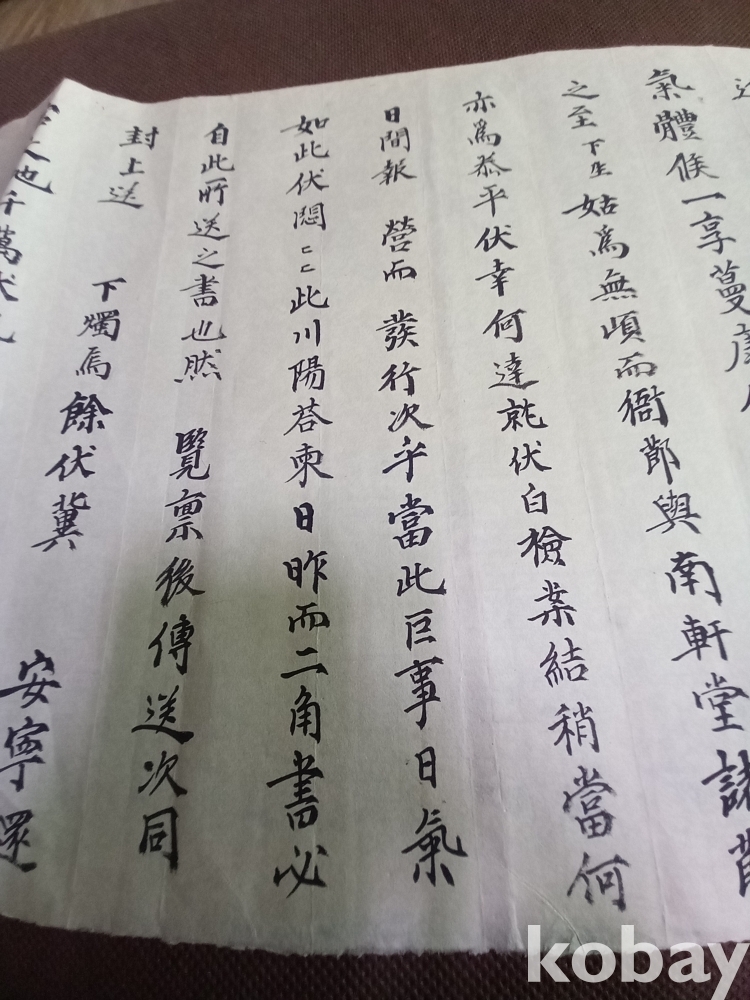 氣體候一享蔓康
之至下生姑爲無頉而衙節與南軒堂諸節
亦爲泰平伏幸何達就伏白檢案結稍當何
日間報 營而 發行次乎當此巨事日氣
如此伏悶〻此川陽荅柬日昨而二角書必
自此所送之書也然 覽稟後傳送次同
封上送
下燭焉餘伏冀
安寧還
之地千萬伏
kobay